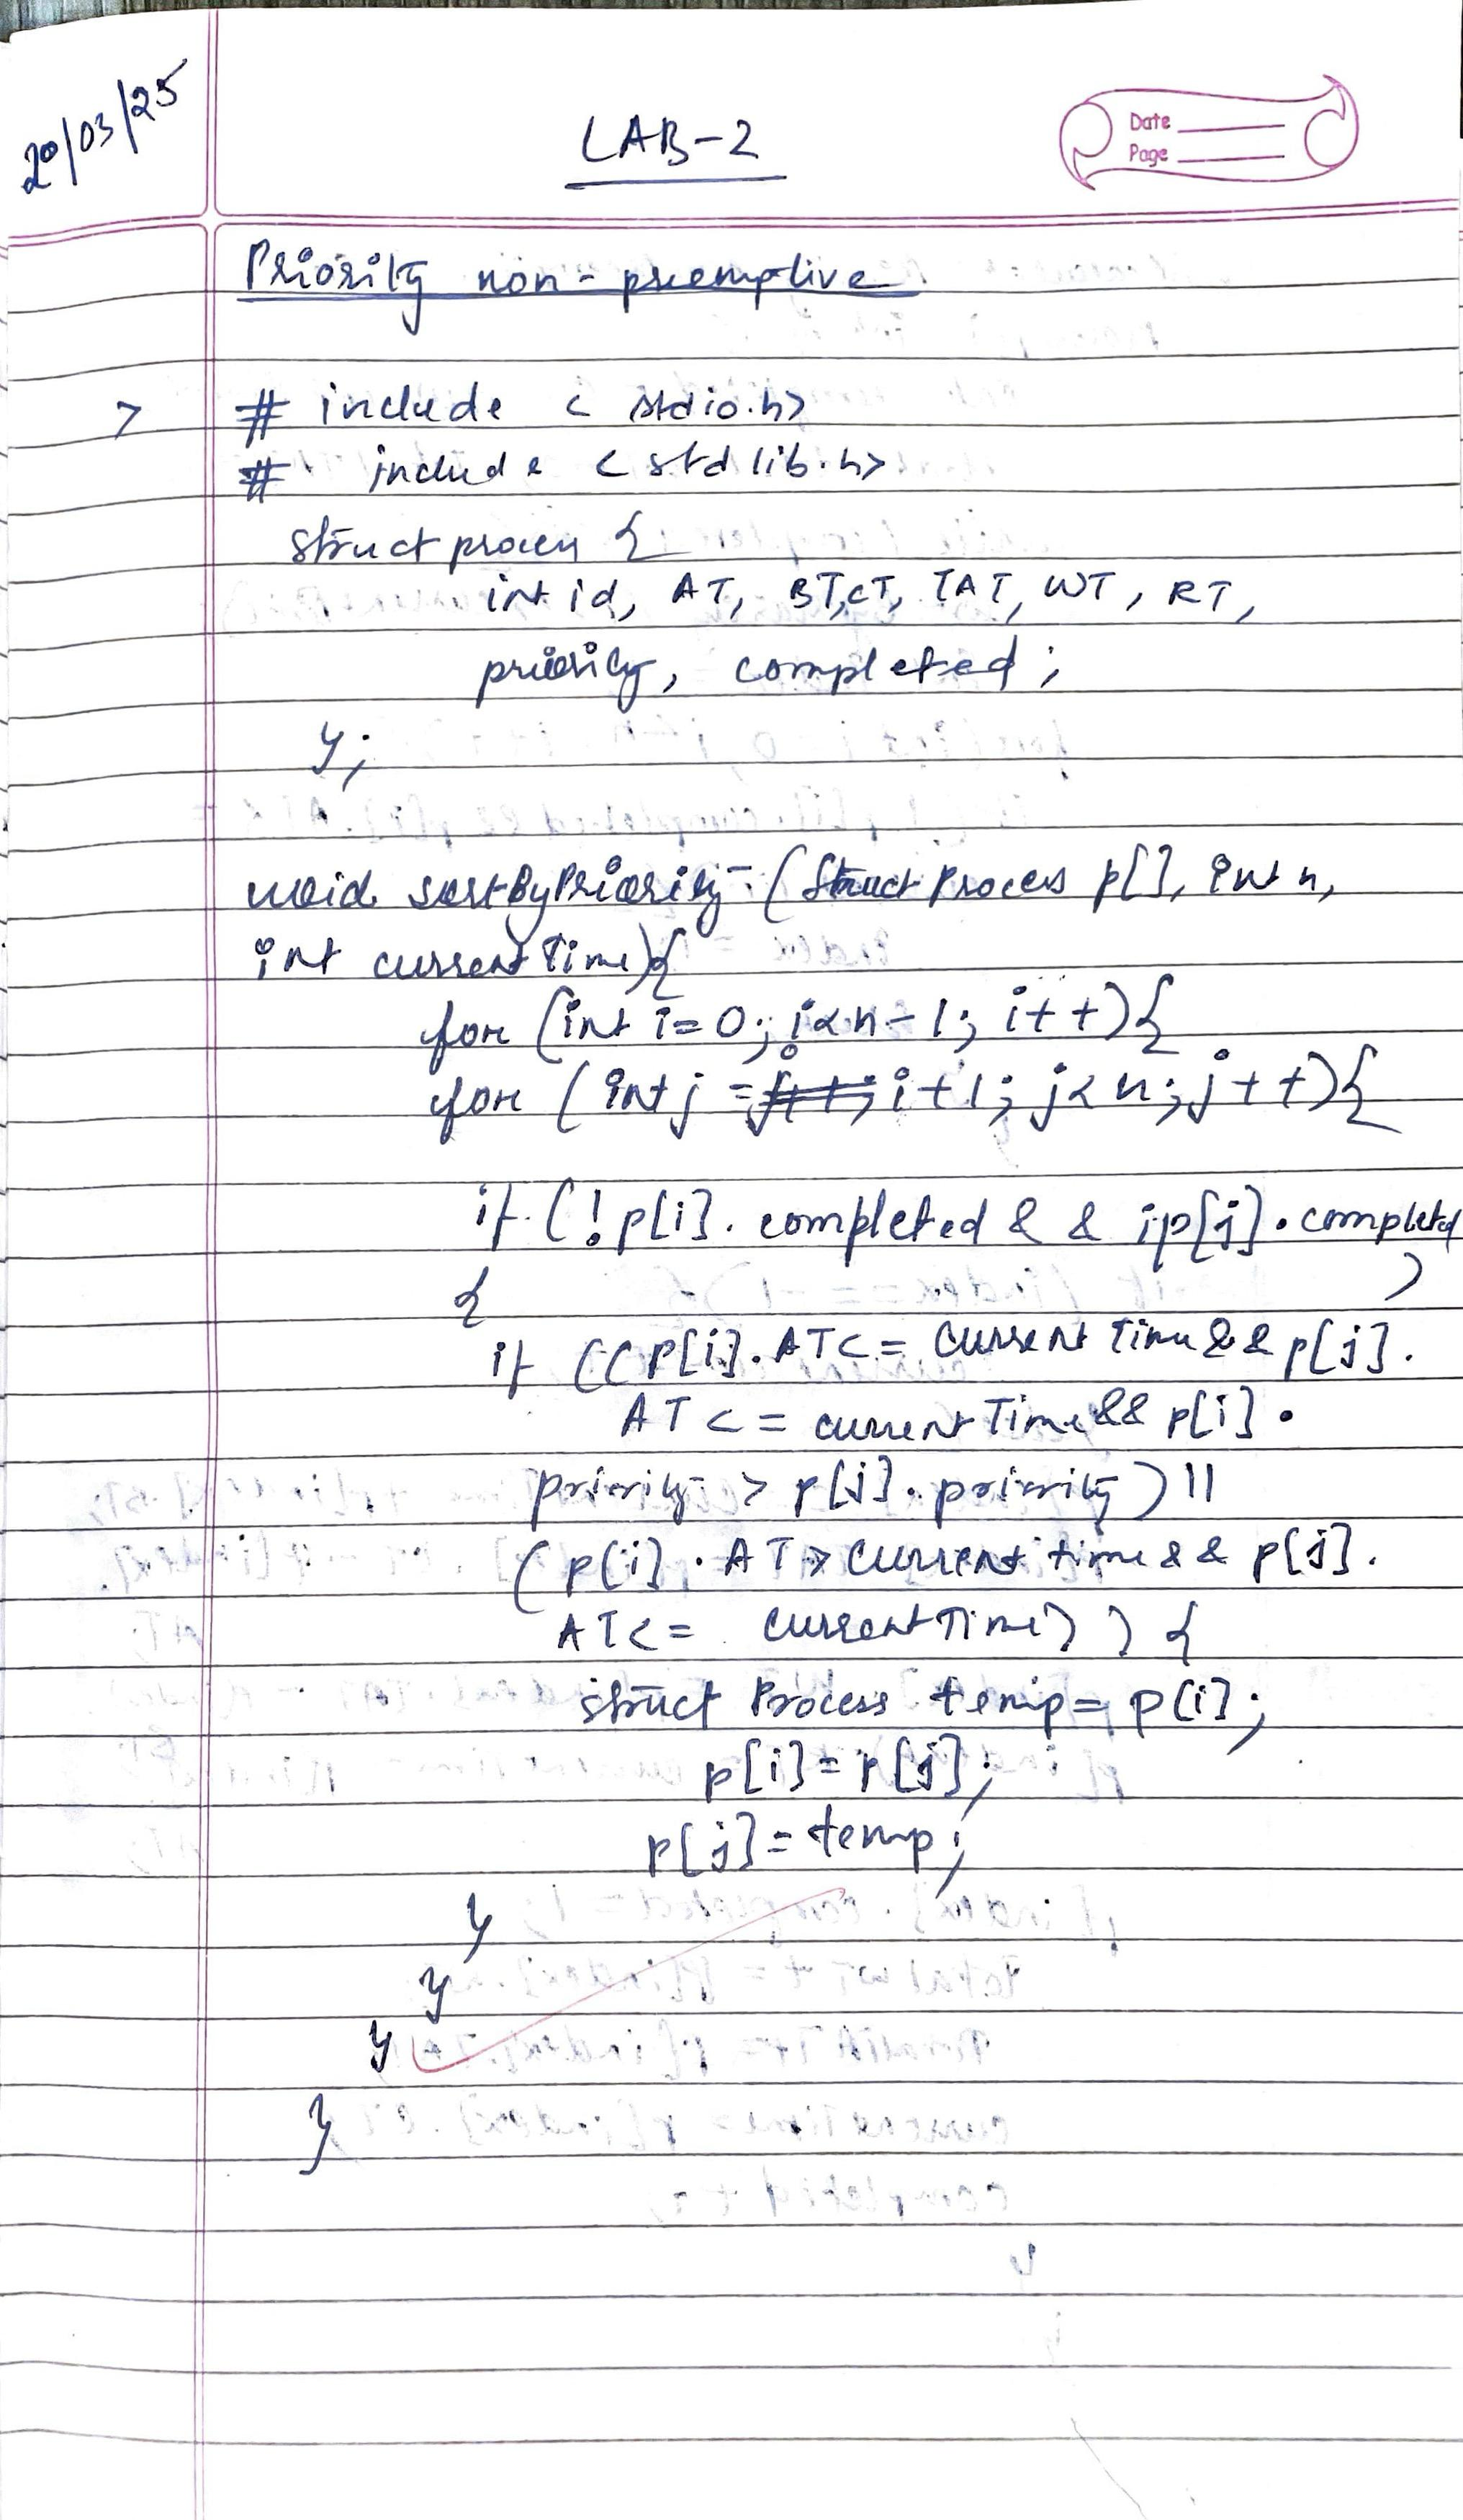 20/03/25
LAB-2
Date
Page
Priority non-preemptive
> # include < stdio.h>
# include < stdlib.h>
struct process {
int id, AT, BT, CT, TAT, WT, RT,
priority, completed;
};
void sortByPriority (struct Process p[], int n,
int currentTime){
for (int i=0; i<n-1; i++){
for (int j = i+1; j<n; j++){
if (!p[i]. completed && !p[j]. completed
)
{
if ((p[i]. AT<= currentTime && p[j].
AT <= currentTime && p[i].
priority > p[j]. priority) ||
(p[i]. AT > current time && p[j].
AT<= currentTime) ) {
struct Process temp= p[i];
p[i]=p[j];
p[j]=temp;
}
}
}
}